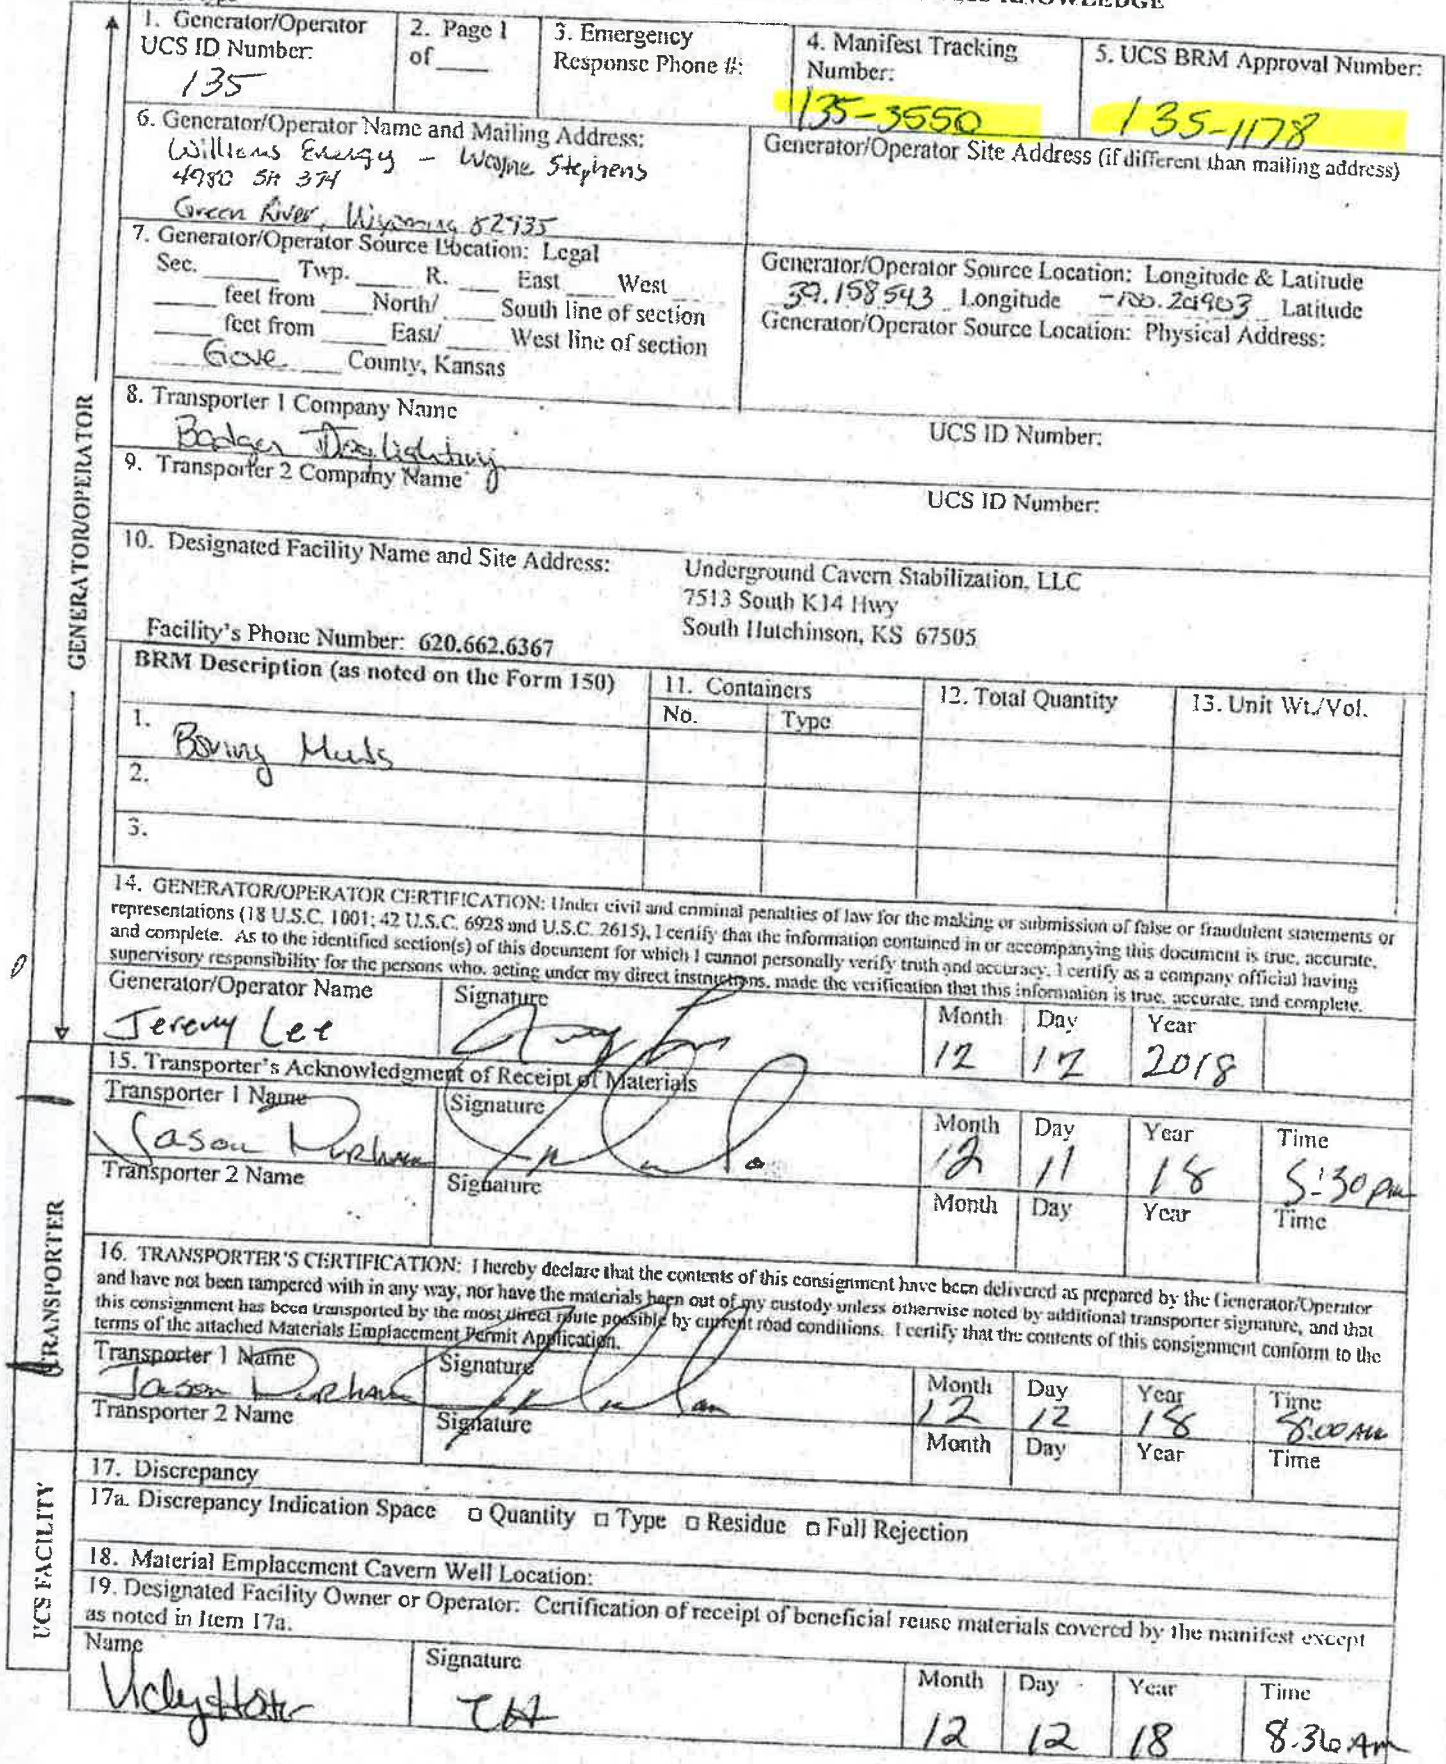 KNOWLEDGE
1. Generator/Operator UCS ID Number: 135
2. Page 1 of ____
3. Emergency Response Phone #:
4. Manifest Tracking Number: 135-3550
5. UCS BRM Approval Number: 135-1178
6. Generator/Operator Name and Mailing Address:
Williams Energy - Wayne Stephens
4980 SH 374
Green River, Wyoming 82935
Generator/Operator Site Address (if different than mailing address)
7. Generator/Operator Source Location: Legal
Sec. ____ Twp. ____ R. ____ East ____ West ____
____ feet from ____ North/ ____ South line of section
____ feet from ____ East/ ____ West line of section
Gove County, Kansas
Generator/Operator Source Location: Longitude & Latitude
39.158543 Longitude Latitude
Generator/Operator Source Location: Physical Address:
8. Transporter 1 Company Name
Badger Daylighting
UCS ID Number:
9. Transporter 2 Company Name
UCS ID Number:
10. Designated Facility Name and Site Address:
Underground Cavern Stabilization, LLC
7513 South K14 Hwy
South Hutchinson, KS 67505
Facility's Phone Number: 620.662.6367
BRM Description (as noted on the Form 150)
11. Containers
No. Type
12. Total Quantity
13. Unit Wt./Vol.
1. Boring Muds
2.
3.
14. GENERATOR/OPERATOR CERTIFICATION: Under civil and criminal penalties of law for the making or submission of false or fraudulent statements or
representations (18 U.S.C. 1001; 42 U.S.C. 6928 and U.S.C. 2615), I certify that the information contained in or accompanying this document is true, accurate,
and complete. As to the identified section(s) of this document for which I cannot personally verify truth and accuracy, I certify as a company official having
supervisory responsibility for the persons who, acting under my direct instructions, made the verification that this information is true, accurate, and complete.
Generator/Operator Name
Jeremy Lee
Signature
Month Day Year
12 12 2018
15. Transporter's Acknowledgment of Receipt of Materials
Transporter 1 Name
Jason Durham
Signature
Month Day Year Time
12 11 18 5:30 pm
Transporter 2 Name
Signature
Month Day Year Time
16. TRANSPORTER'S CERTIFICATION: I hereby declare that the contents of this consignment have been delivered as prepared by the Generator/Operator
and have not been tampered with in any way, nor have the materials been out of my custody unless otherwise noted by additional transporter signature, and that
this consignment has been transported by the most direct route possible by current road conditions. I certify that the contents of this consignment conform to the
terms of the attached Materials Emplacement Permit Application.
Transporter 1 Name
Jason Durham
Signature
Month Day Year Time
12 12 18 8:00 AM
Transporter 2 Name
Signature
Month Day Year Time
17. Discrepancy
17a. Discrepancy Indication Space □ Quantity □ Type □ Residue □ Full Rejection
18. Material Emplacement Cavern Well Location:
19. Designated Facility Owner or Operator: Certification of receipt of beneficial reuse materials covered by the manifest except
as noted in Item 17a.
Name
Signature
Month Day Year Time
12 12 18 8:36 Am
GENERATOR/OPERATOR
TRANSPORTER
UCS FACILITY